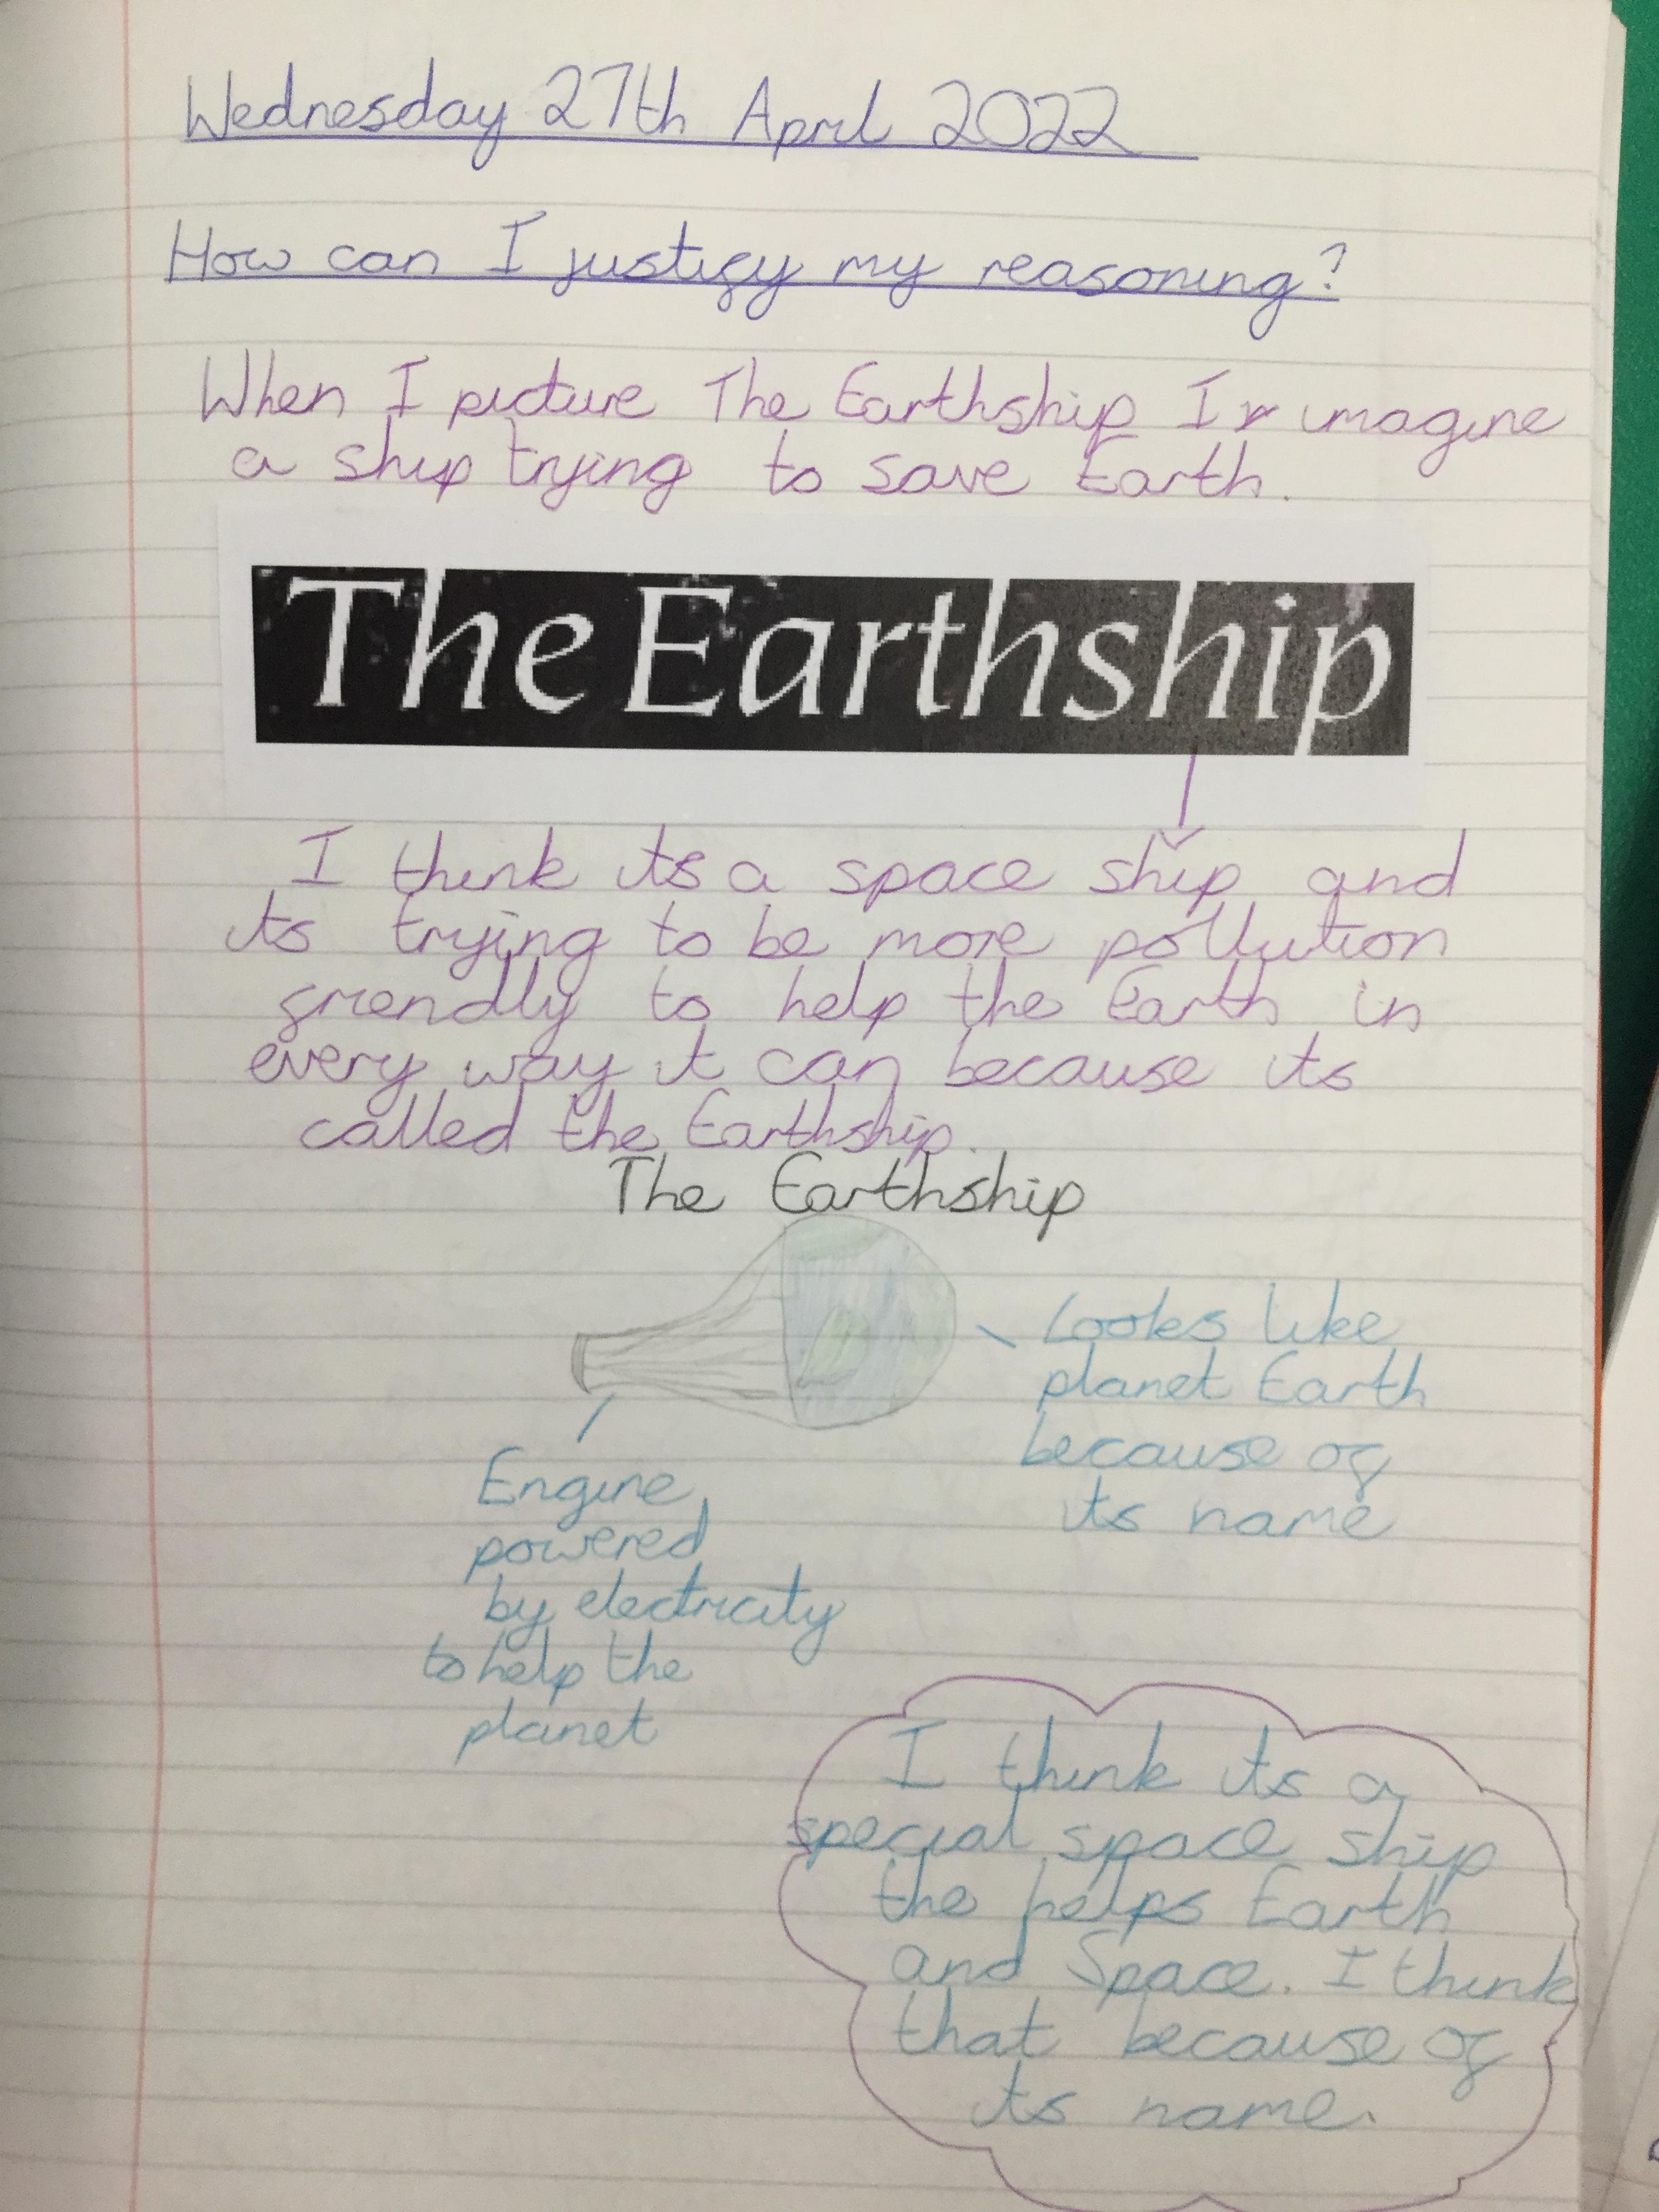 Wednesday 27th April 2022
How can I justify my reasoning?
When I picture The Earthship I imagine
a ship trying to save Earth.
The Earthship
I think its a space ship and
its trying to be more pollution
friendly to help the Earth in
every way it can because its
called the Earthship.
The Earthship
Looks like
planet Earth
because of
its name
Engine
powered
by electricity
to help the
planet
I think its a
special space ship
the helps Earth
and Space. I think
that because of
its name.